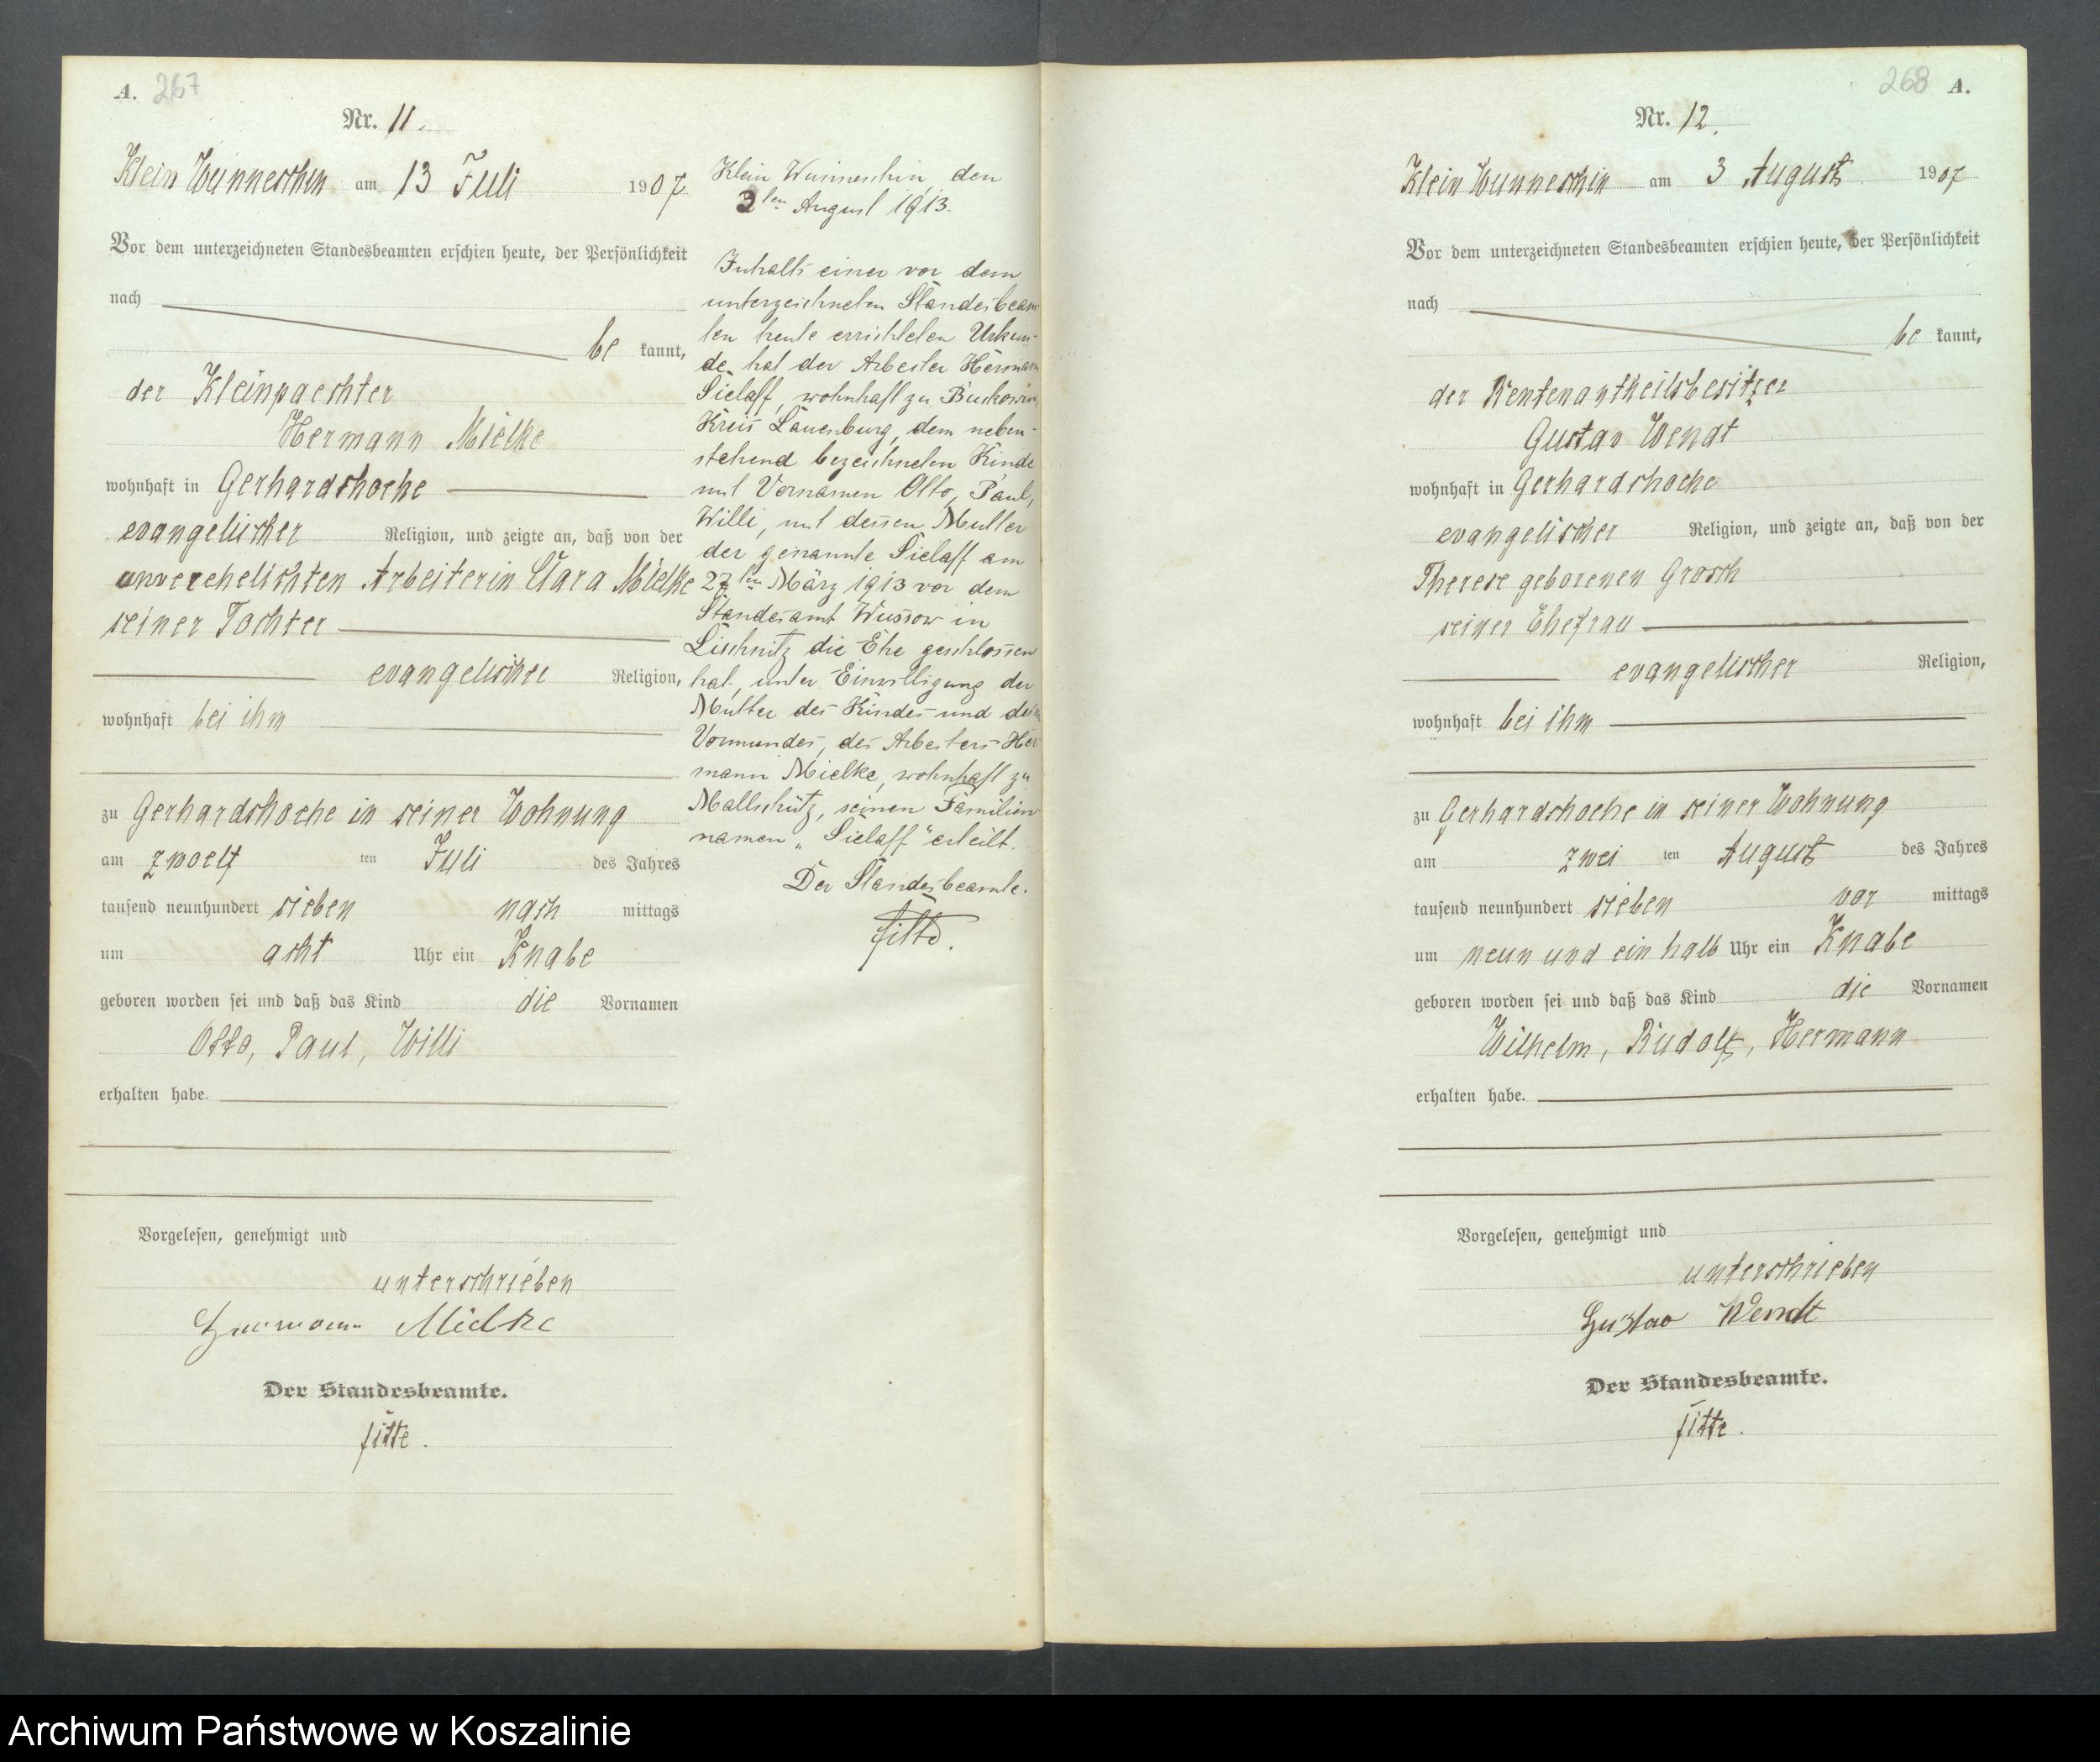 A. 267
Nr. 11.
Klein Wunneschin am 13 Juli 1907
Vor dem unterzeichneten Standesbeamten erschien heute, der Persönlichkeit
nach
be kannt,
der Kleinpaechter
Hermann Mielke
wohnhaft in Gerhardshoehe
evangelischer Religion, und zeigte an, daß von der
unverehelichten Arbeiterin Clara Mielke
seiner Tochter
evangelischer Religion,
wohnhaft bei ihm
zu Gerhardshoehe in seiner Wohnung
am zwoelf ten Juli des Jahres
tausend neunhundert sieben nach mittags
um acht Uhr ein Knabe
geboren worden sei und daß das Kind die Vornamen
Otto, Paul, Willi
erhalten habe.
Vorgelesen, genehmigt und
unterschrieben
Hermann Mielke
Der Standesbeamte.
Fitte.
Klein Wunneschin, den
2ten August 1913.
Inhalts einer vor dem
unterzeichneten Standesbeam
ten heute errichteten Urkun-
de hat der Arbeiter Hermann
Sielaff, wohnhaft zu Buckowin,
Kreis Lauenburg, dem neben-
stehend bezeichneten Kinde
mit Vornamen Otto, Paul,
Willi, mit dessen Mutter
der genannte Sielaff am
27ten März 1913 vor dem
Standesamt Wussow in
Lischnitz die Ehe geschlossen
hat, unter Einwilligung der
Mutter des Kindes und des
Vormundes, des Arbeiters Her
mann Mielke, wohnhaft zu
Mallschütz, seinen Familien
namen „Sielaff“ erteilt.
Der Standesbeamte.
Fitte.
268 A.
Nr. 12.
Klein Wunneschin am 3 August 1907
Vor dem unterzeichneten Standesbeamten erschien heute, der Persönlichkeit
nach
be kannt,
der Rentenantheilsbesitzer
Gustav Wendt
wohnhaft in Gerhardshoehe
evangelischer Religion, und zeigte an, daß von der
Therese geborenen Grosch
seiner Ehefrau
evangelischer Religion,
wohnhaft bei ihm
zu Gerhardshoehe in seiner Wohnung
am zwei ten August des Jahres
tausend neunhundert sieben vor mittags
um neun und ein halb Uhr ein Knabe
geboren worden sei und daß das Kind die Vornamen
Wilhelm, Rudolf, Hermann
erhalten habe.
Vorgelesen, genehmigt und
unterschrieben
Gustav Wendt
Der Standesbeamte.
Fitte.
Archiwum Państwowe w Koszalinie